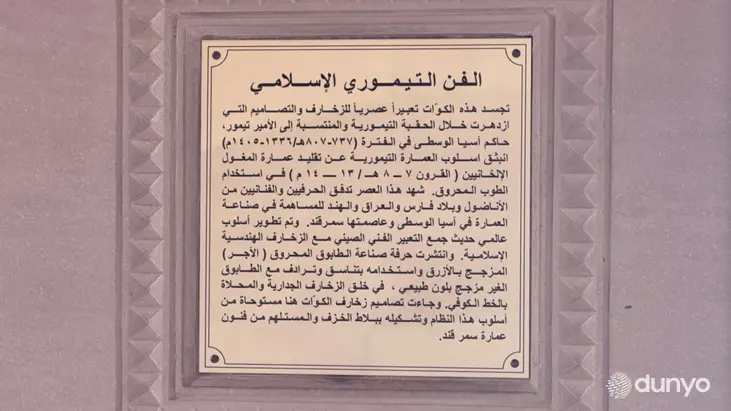 الفن التيموري الإسلامي
تجسد هذه الكوّات تعبيراً عصرياً للزخارف والتصاميم التي
ازدهرت خلال الحقبة التيمورية والمنتسبة إلى الأمير تيمور،
حاكم آسيا الوسطى في الفترة (٧٣٧-٨٠٧هـ/١٣٣٦-١٤٠٥م)
انبثق اسلوب العمارة التيمورية عن تقليد عمارة المغول
الإلخانيين ( القرون ٧ – ٨ هـ / ١٣ – ١٤ م ) في استخدام
الطوب المحروق. شهد هذا العصر تدفق الحرفيين والفنانيين من
الأناضول وبلاد فارس والعراق والهند للمساهمة في صناعة
العمارة في آسيا الوسطى وعاصمتها سمرقند. وتم تطوير أسلوب
عالمي حديث جمع التعبير الفني الصيني مع الزخارف الهندسية
الإسلامية. وانتشرت حرفة صناعة الطابوق المحروق ( الآجر )
المزجج بالأزرق واستخدامه بتناسق وترادف مع الطابوق
الغير مزجج بلون طبيعي ، في خلق الزخارف الجدارية والمحلاة
بالخط الكوفي. وجاءت تصاميم زخارف الكوّات هنا مستوحاة من
أسلوب هذا النظام وتشكيله ببلاط الخزف والمستلهم من فنون
عمارة سمر قند.
dunyo